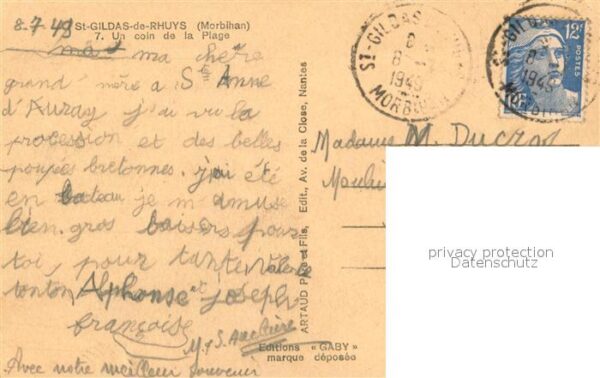 8-7-49
St-GILDAS-de-RHUYS (Morbihan)
7. Un coin de la Plage
ma chere
grand' mère a Ste Anne
d'Auray j'ai vu la
procession et des belles
poupées bretonnes. j'ai été
en bateau je m'amuse
bien. gros baisers pour
toi, pour tante Valerie
tonton Alphonse et joseph
françoise
Avec notre meilleur souvenir
ARTAUD Père et Fils, Edit., Av. de la Close, Nantes
Editions « GABY »
marque déposée
ST-GILDAS
8
1949
MORBIHAN
ST-GILDAS
8
1949
12F
POSTES
Madame M. Ducros
privacy protection
Datenschutz